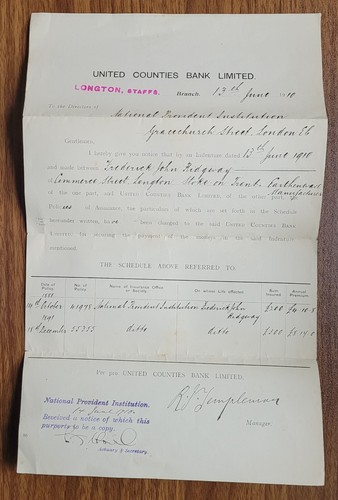 UNITED COUNTIES BANK LIMITED.
LONGTON, STAFFS. Branch, 13th June 1910
To the Directors of
National Provident Institution
Gracechurch Street, London EC
Gentlemen,
I hereby give you notice that by an Indenture dated 13th June 1910
and made between Frederick John Ridgway
Commerce Street, Longton Stoke on Trent. Earthenware Manufacturer
of the one part, and UNITED COUNTIES BANK LIMITED, of the other part,
Policies of Assurance, the particulars of which are set forth in the Schedule
hereunder written, have been charged to the said UNITED COUNTIES BANK
LIMITED, by securing the payment of the moneys in the said Indenture
mentioned.
THE SCHEDULE ABOVE REFERRED TO.
Date of Policy No. of Policy Name of Insurance Office or Society On whose Life effected Sum Insured Annual Premium
1888
October National Provident Institution Frederick John Ridgway £500
1891
December 55352 ditto ditto £500
Per pro UNITED COUNTIES BANK LIMITED,
R. J. Templeman
Manager.
National Provident Institution.
14 June 1910
Received a notice of which this
purports to be a copy.
Actuary & Secretary.